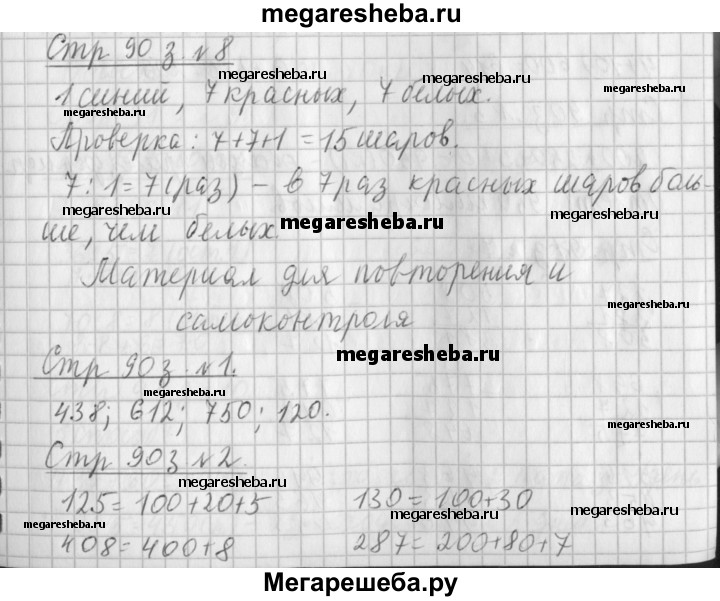 megaresheba.ru
Стр 90 з №8
megaresheba.ru megaresheba.ru
1 синий, 7 красных, 7 белых.
megaresheba.ru megaresheba.ru
Проверка: 7+7+1=15 шаров.
7:1=7(раз) - в 7 раз красных шаров боль-
megaresheba.ru megaresheba.ru megaresheba.ru
ше, чем белых.
Материал для повторения и
megaresheba.ru
самоконтроля
megaresheba.ru
Стр 90 з №1.
megaresheba.ru
438; 612; 750; 120.
megaresheba.ru
Стр 90 з №2.
megaresheba.ru
125=100+20+5 130=100+30
megaresheba.ru megaresheba.ru megaresheba.ru
408=400+8 287=200+80+7
Мегарешеба.ру